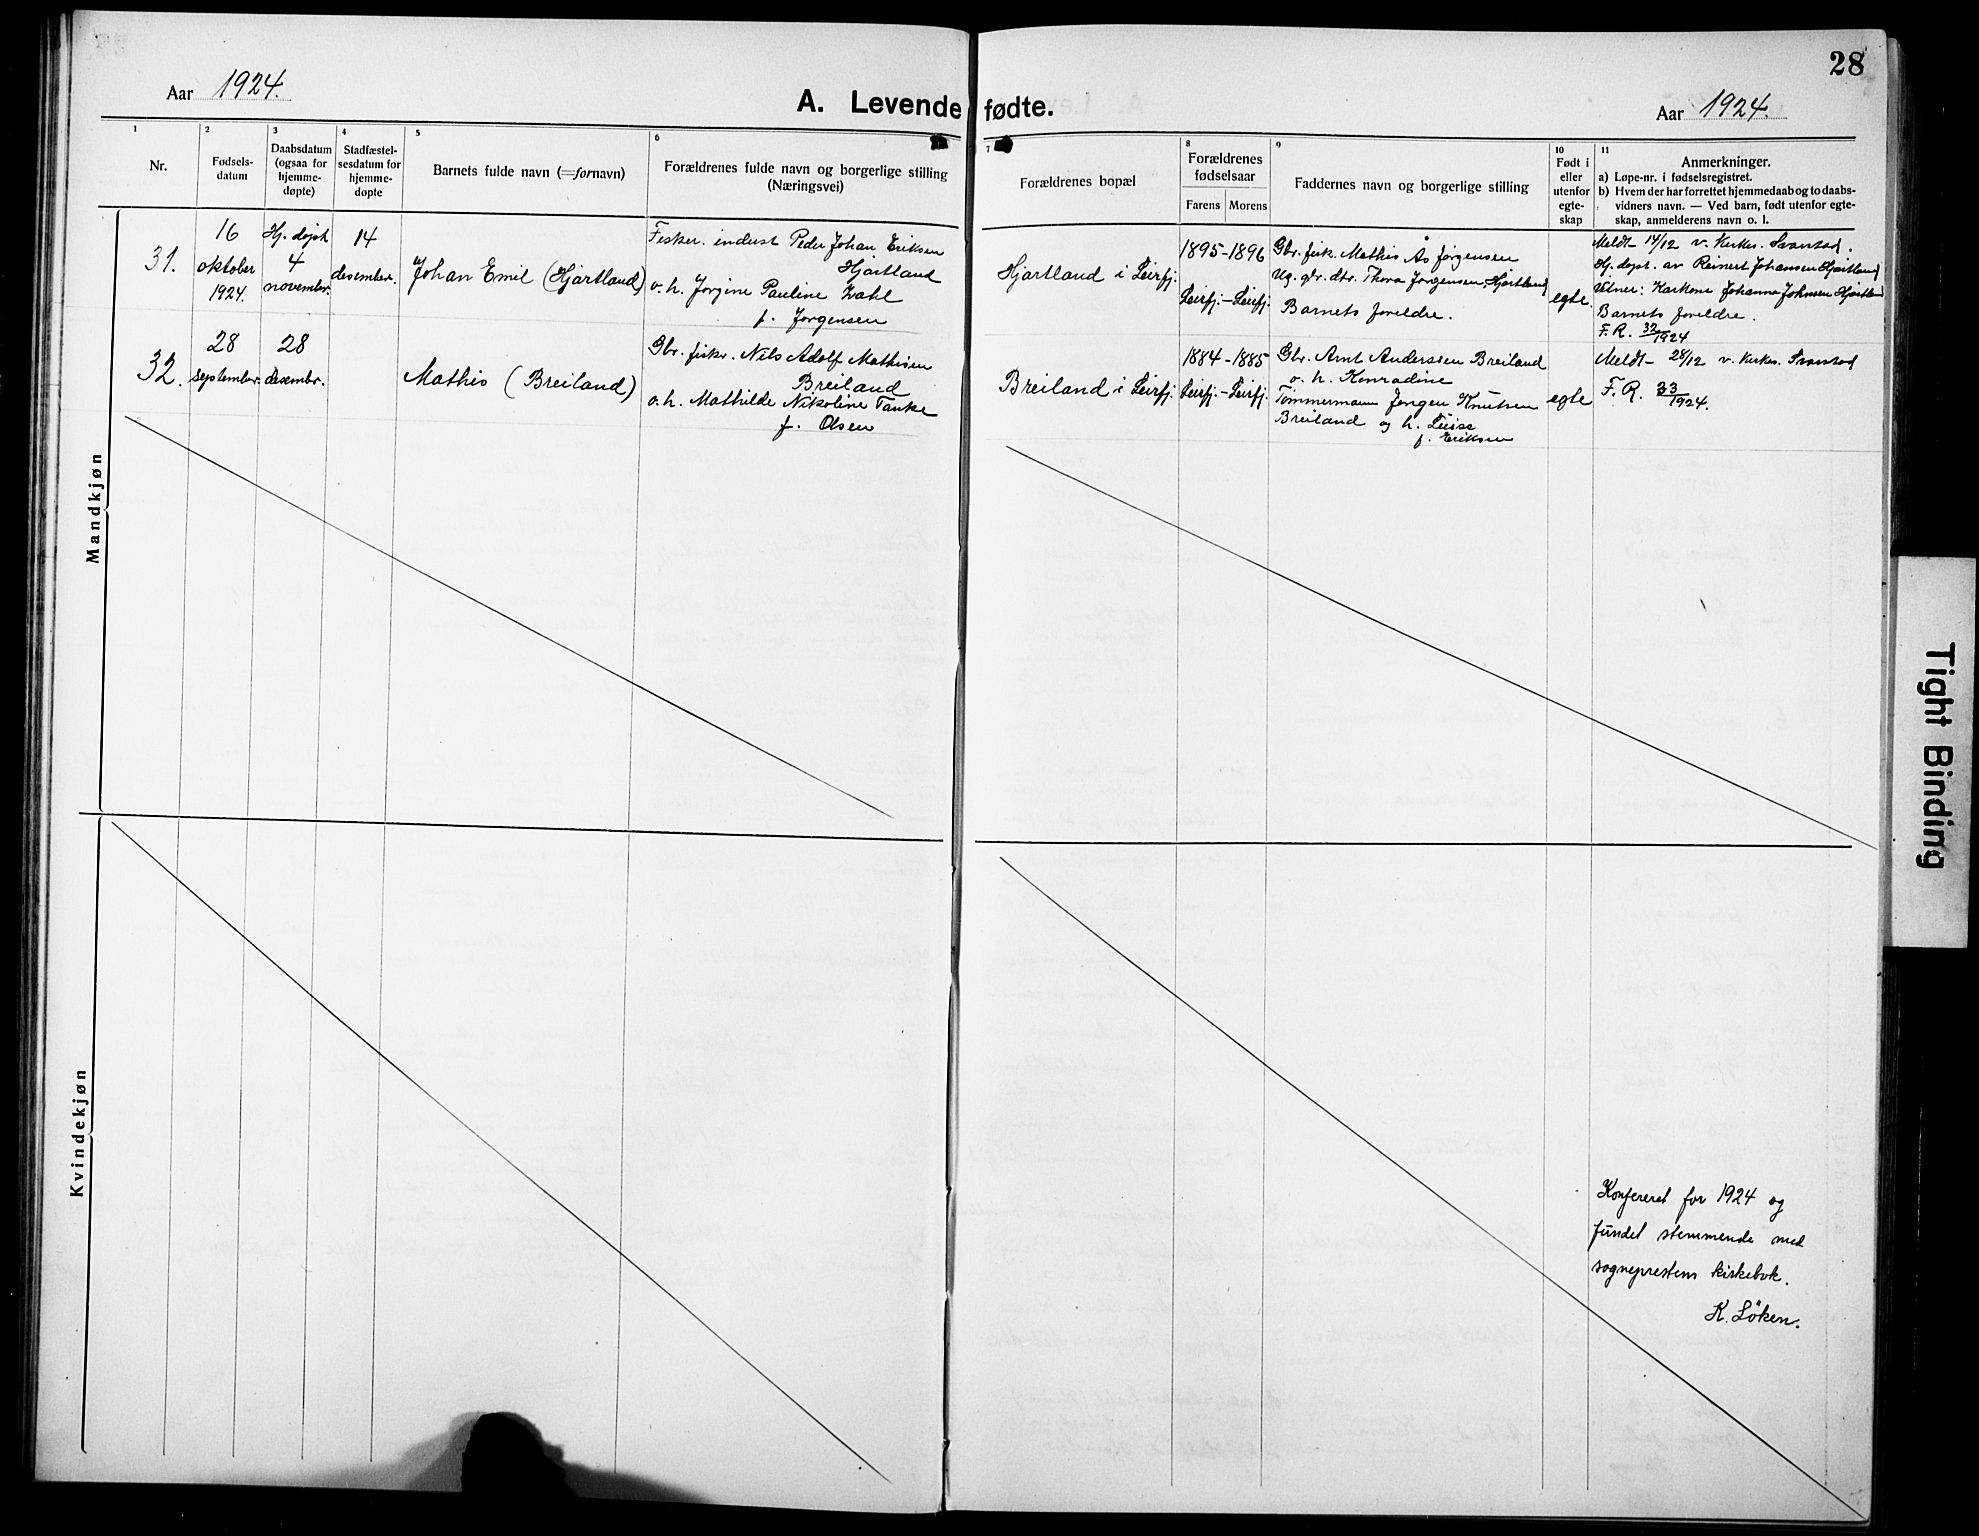 28
Aar 1924.
A. Levende fødte.
Aar 1924.
1
Nr.
2
Fødsels-
datum
3
Daabsdatum
(ogsaa for
hjemme-
døpte)
4
Stadfæstel-
sesdatum for
hjemme-
døpte
5
Barnets fulde navn (=fornavn)
6
Forældrenes fulde navn og borgerlige stilling
(Næringsvei)
7
Forældrenes bopæl
8
Forældrenes
fødselsaar
Farens Morens
9
Faddernes navn og borgerlige stilling
10
Født i
eller
utenfor
egte-
skap
11
Anmerkninger.
a) Løpe-nr. i fødselsregistret.
b) Hvem der har forrettet hjemmedaab og to daabs-
vidners navn. — Ved barn, født utenfor egte-
skap, anmelderens navn o. l.
Mandkjøn
31.
16
oktober
1924.
Hj. døpt
4
november.
14
desember.
Johan Emil (Hjartland)
Fisker. inderst Peder Johan Eriksen
Hjartland
o. h. Jorgine Pauline Zahl
f. Jorgensen
Hjartland i Leirfj.
1895-1896
Leirfj.-Leirfj.
Gbr. fisk. Mathis Ås Jørgensen
Ug. gbr. dtr. Thora Jørgensen, Hjartland
Barnets foreldre.
egte.
Meldt 14/12 v. Kirkes. Svantad.
Hj. døpt. av Reinert Johansen Hjartland
Vitner: Karkone Johanna Johnsen Hjartland
Barnets foreldre.
F. R. 32/1924
32.
28
september.
28
desembr.
Mathis (Breiland)
Gbr. fiskr. Nils Adolf Mathisen
Breiland
o. h. Mathilde Nikoline Tanke
f. Olsen
Breiland i Leirfj.
1884-1885
Leirfj.-Leirfj.
Gbr. Arnt Anderssen Breiland
o. h. Konradine
Tømmermann Jørgen Knutsen
Breiland og h. Luise
f. Eriksen
egte
Meldt 28/12 v. Kirkes. Svantad
F. R. 33/1924.
Kvindekjøn
Konfereret for 1924 og
fundet stemmende med
sogneprestens kirkebok.
K. Löken.
Tight Binding